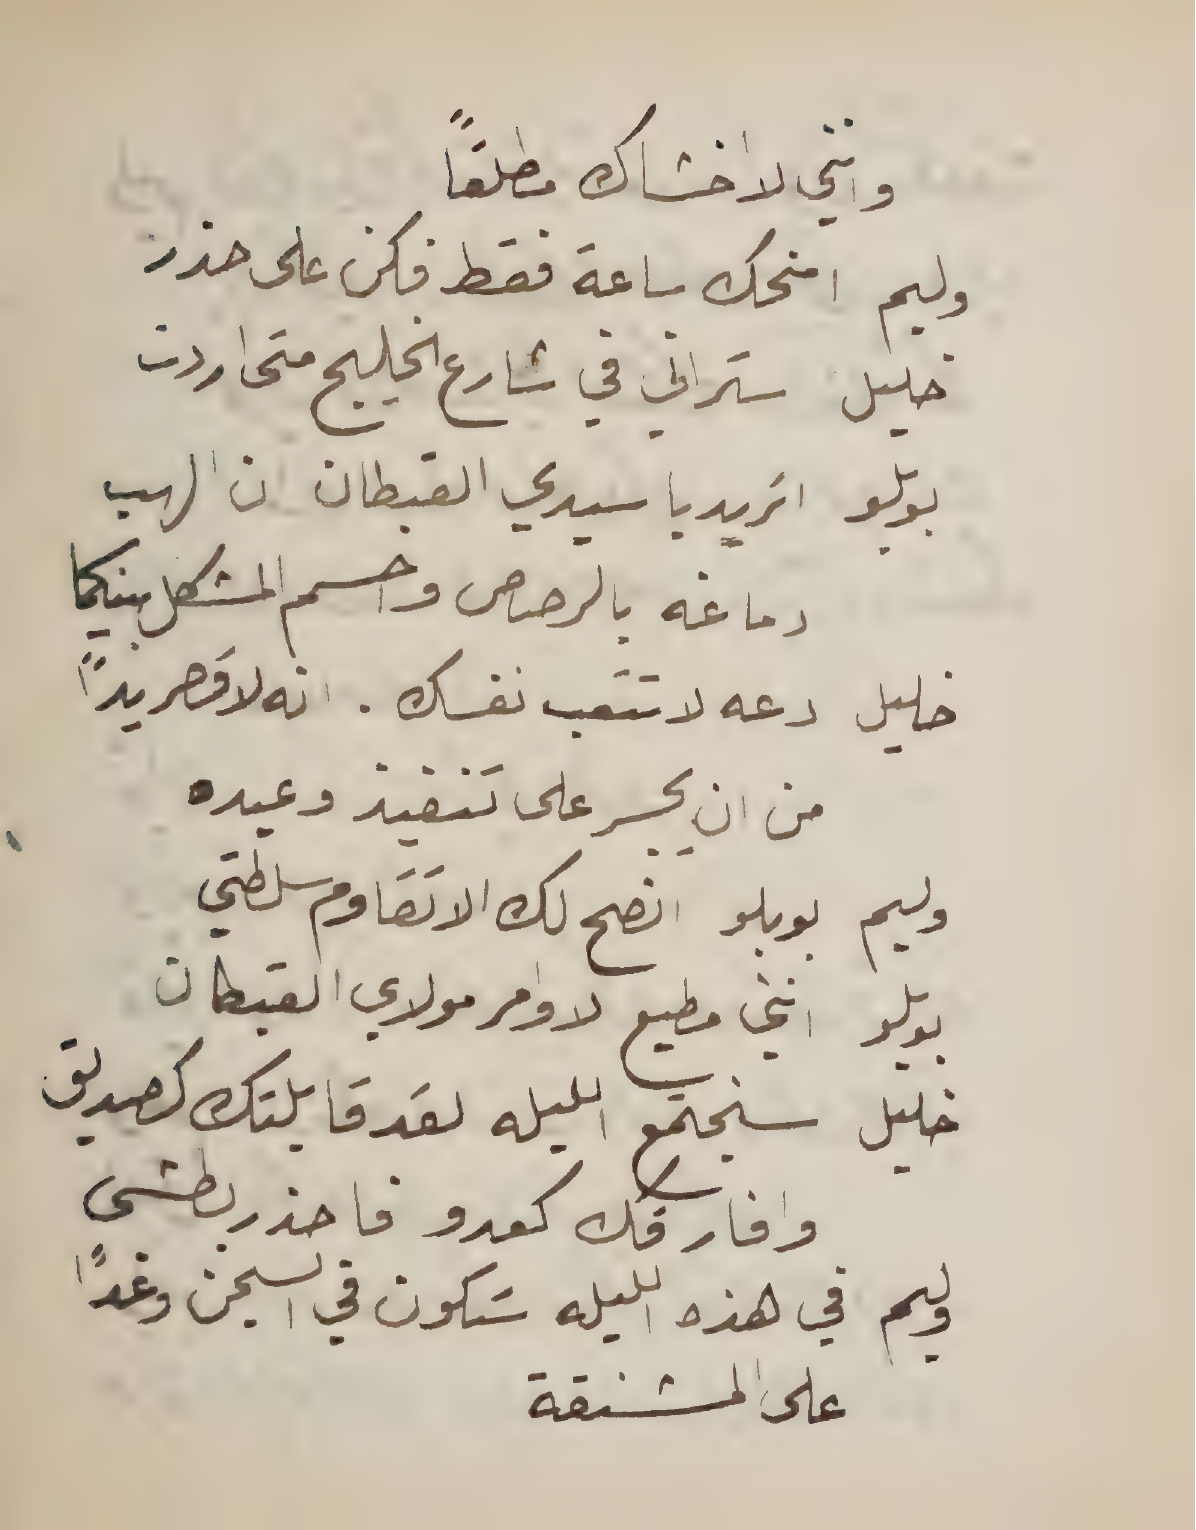 وانني لا اخشاك مطلقاً
وليم امنحك ساعة فقط فكن على حذر
خليل ستراني في شارع الخليج متى اردت
بوبلو اتريد يا سيدي القبطان ان الهب
دماغه بالرصاص واحسم المشكل بينكما
خليل دعه لا تتعب نفسك . انه لا
من ان يجسر على تنفيذ وعيده
وليم بوبلو انصح لك الا تقاوم سلطتي
بوبلو انني مطيع لاوامر مولاي القبطان
خليل سنجتمع الليله لقد قابلتك كصديق
وافارقك كعدو فاحذر بطشى
وليم في هذه الليله ستكون في السجن وغداً
على المشنقة